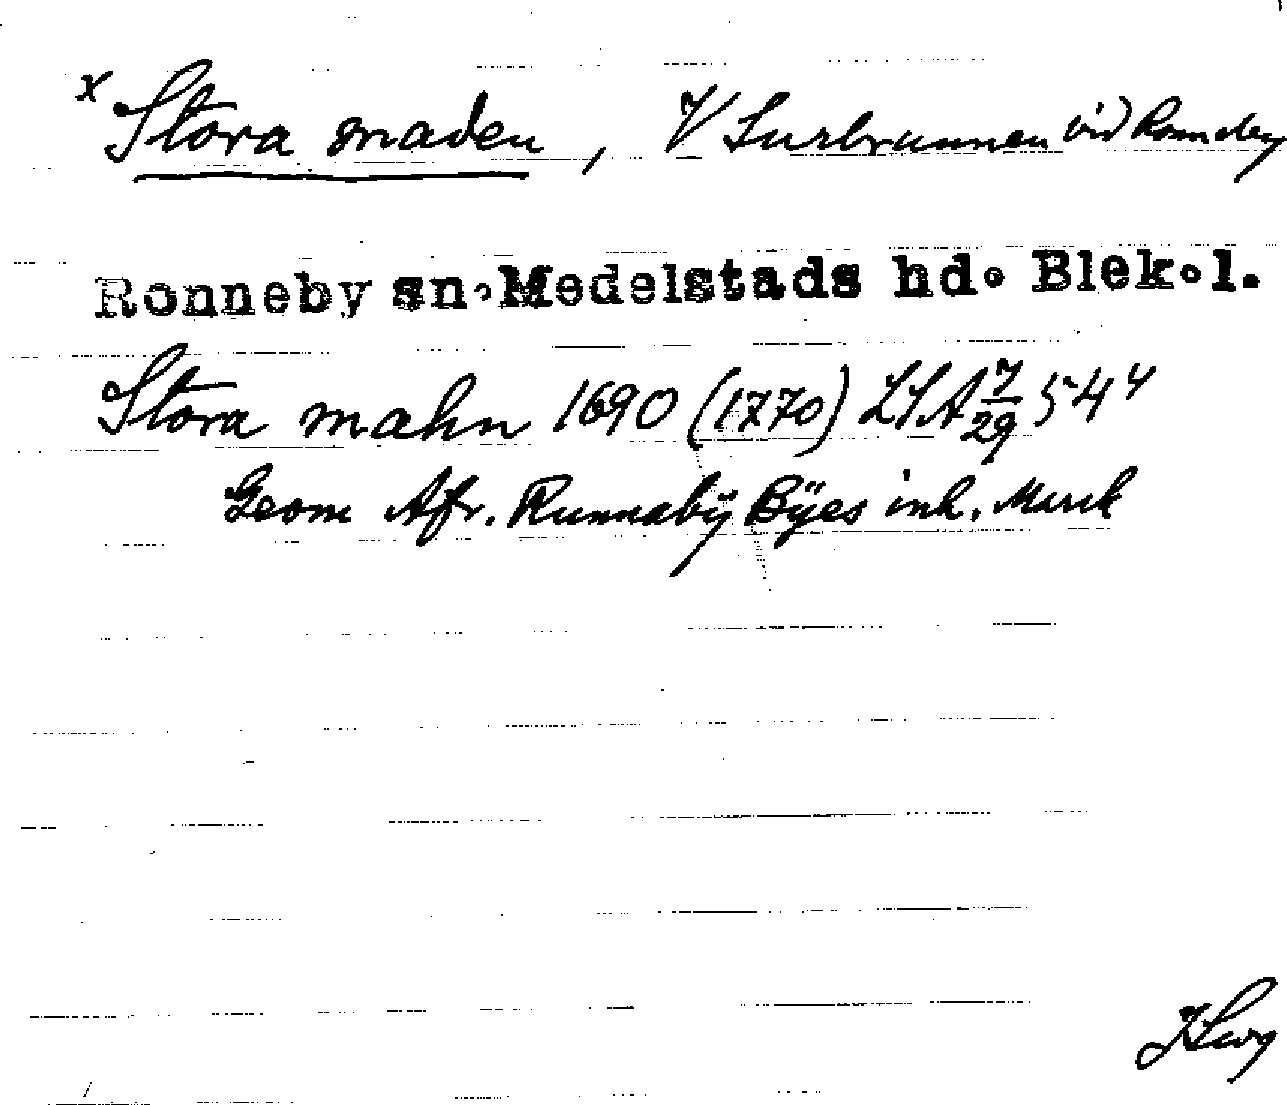 x Stora maden, V Surbrunnen vid Ronneby
Ronneby sn. Medelstads hd. Blek. l.
Stora mahn 1690 (1770) LSA 7/29 54 4
Geom Afr. Runnabÿ Bÿes inh. Murk